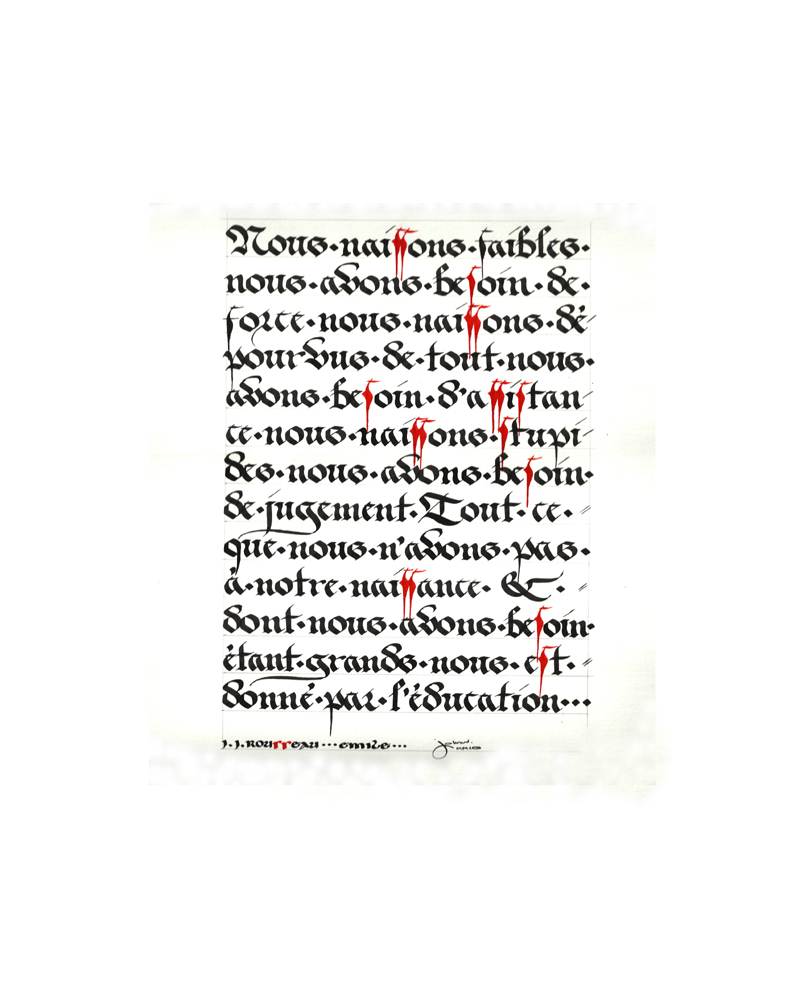 Nous·naissons·faibles·
nous·avons·besoin·de·
force·nous·naissons·dé
pourvus·de·tout·nous·
avons·besoin·d'assistan
ce·nous·naissons·stupi
des·nous·avons·besoin·
de·jugement·Tout·ce·
que·nous·n'avons·pas·
à·notre·naissance·&·
dont·nous·avons·besoin·
étant·grands·nous·est·
donné·par·l'éducation···
J.J.Rousseau···emile···